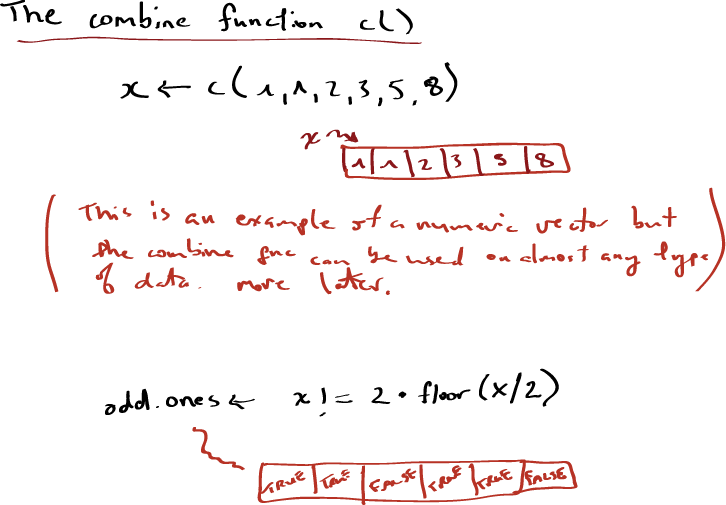 The combine function c()
x ← c(1,1,2,3,5,8)
x
1 1 2 3 5 8
(This is an example of a numeric vector but
the combine func can be used on almost any type
of data. more later.)
odd.ones ← x != 2 • floor(x/2)
TRUE TRUE FALSE TRUE TRUE FALSE